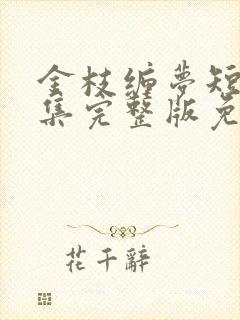 金枝缠梦短
集完整版免
花千辭